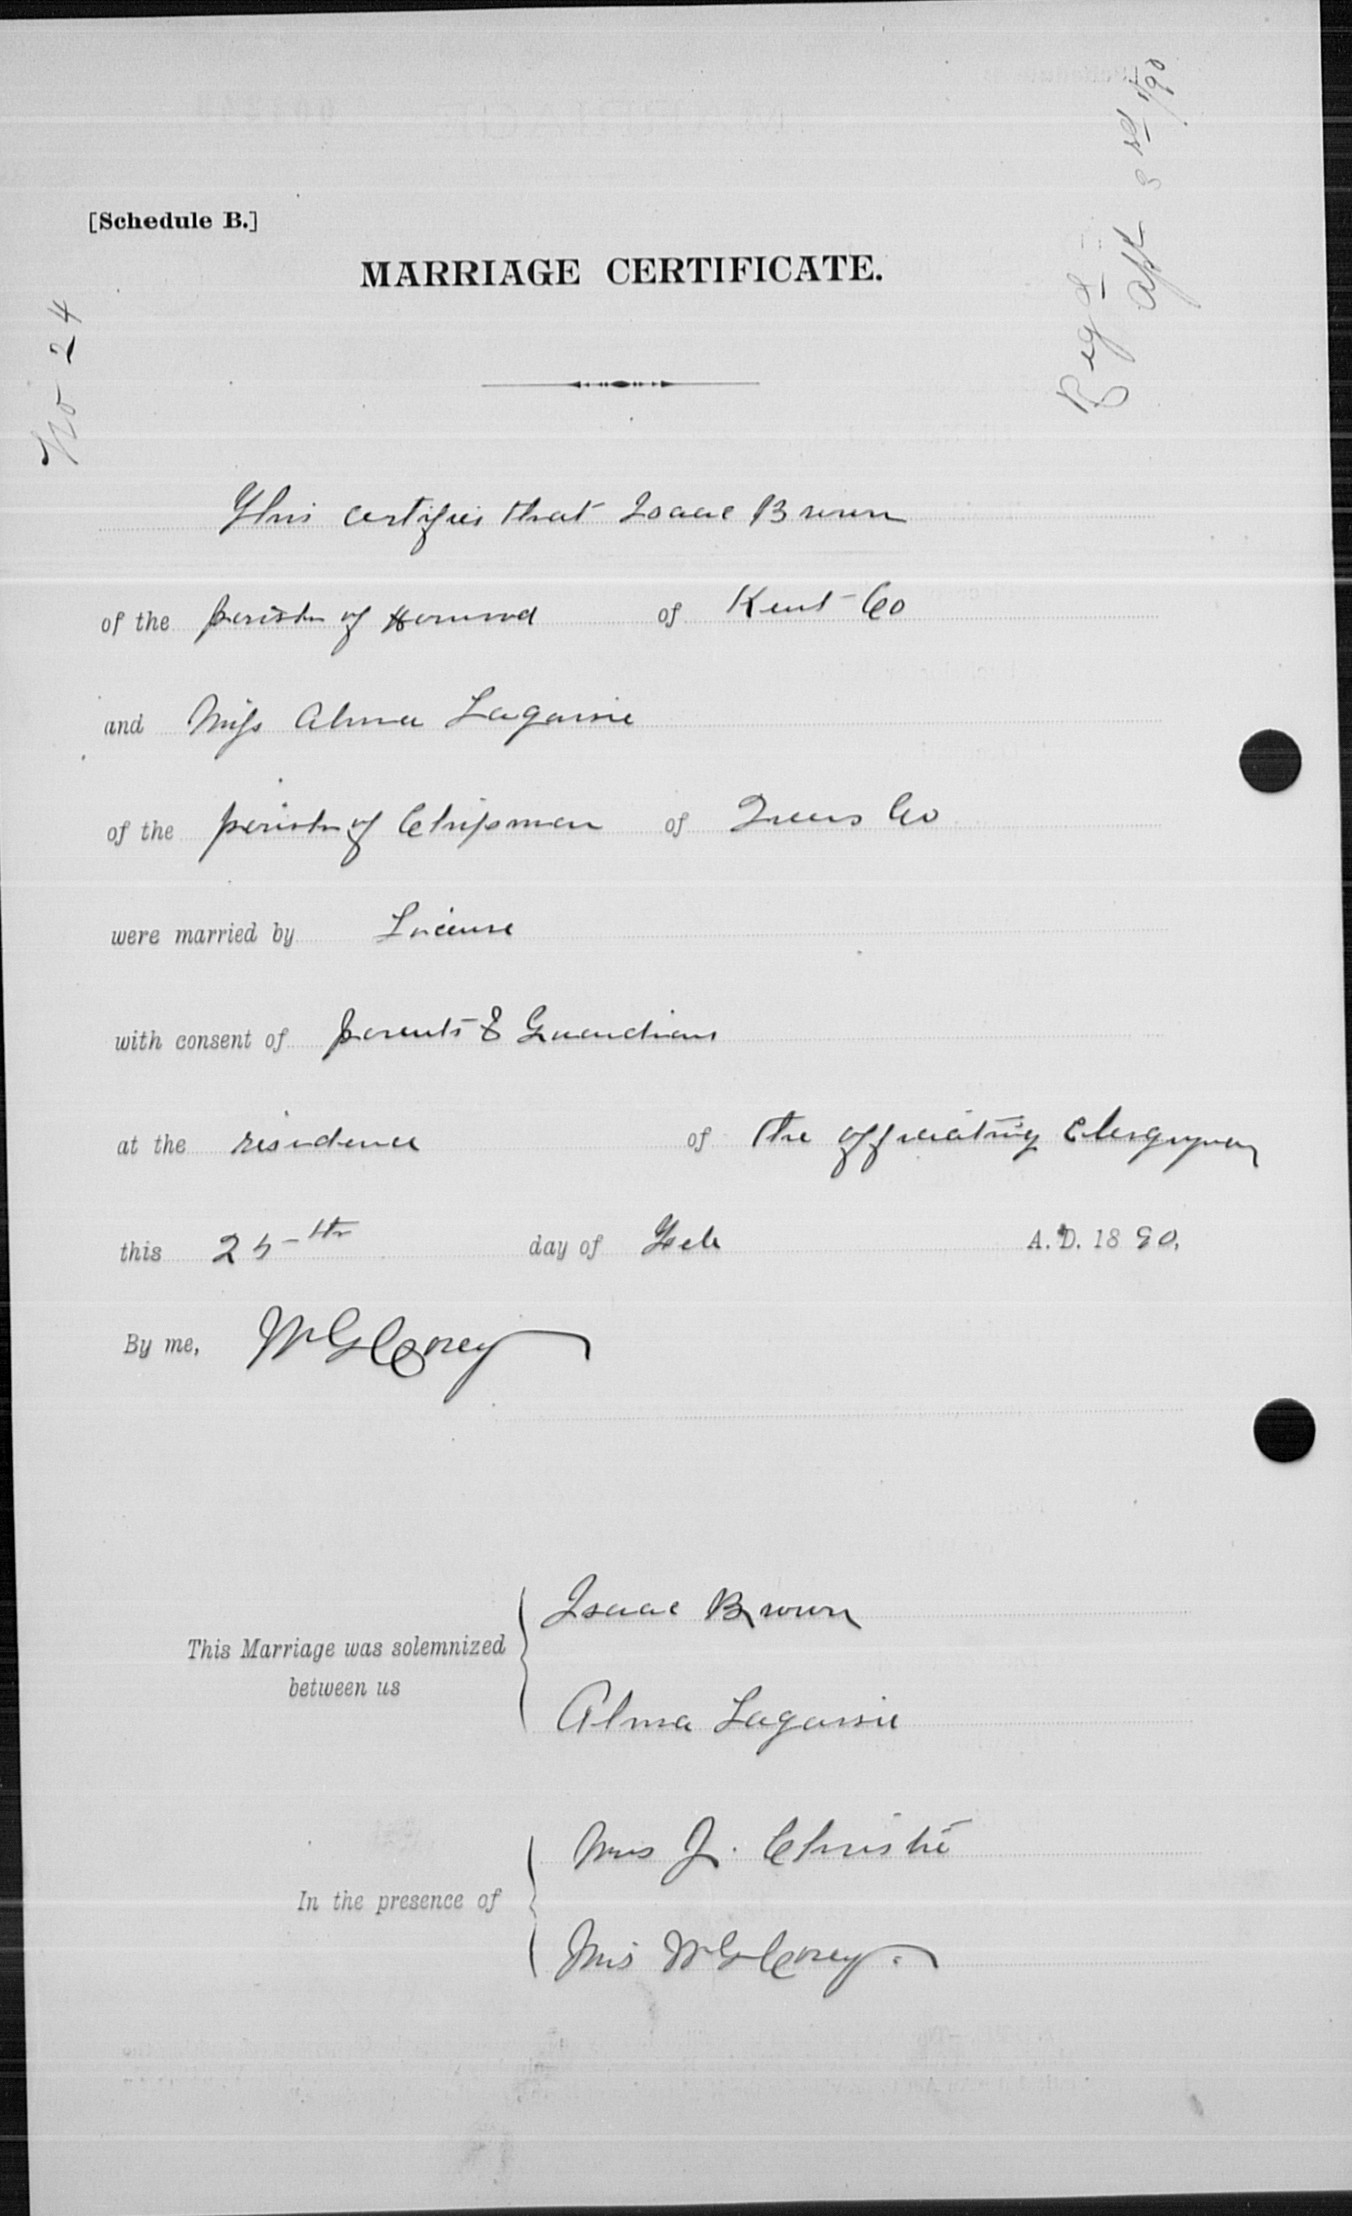 [Schedule B.]
MARRIAGE CERTIFICATE.
No 24
Regd
Apl 3rd 1/90
This certifies that Isaac Brown
of the parish of Harcourt of Kent Co
and Miss Alma Lagassie
of the parish of Chipman of Queens Co
were married by License
with consent of parents & Guardians
at the residence of the officiating Clergyman
this 25th day of Feb A.D. 1890.
By me, W G Corey
This Marriage was solemnized
between us
Isaac Brown
Alma Lagassie
In the presence of
Mrs J. Christie
Mrs W G Corey.